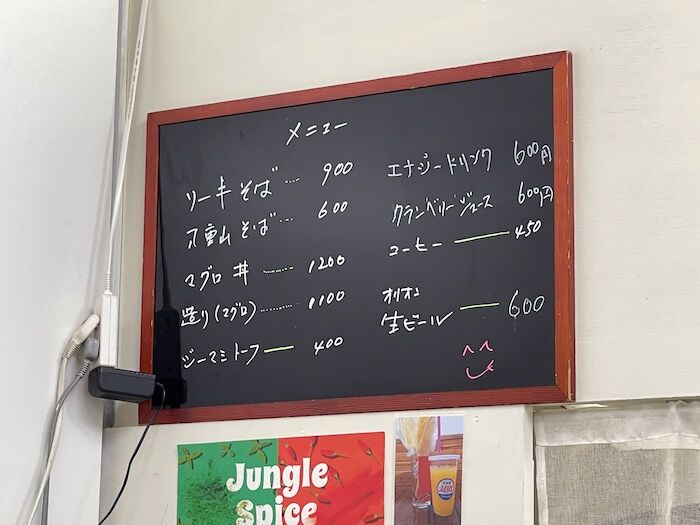 メニュー
ソーキそば .... 900
八重山そば ... 600
マグロ丼 ........ 1200
造り(マグロ) ......... 1100
ジーマミトーフ — 400
エナジードリンク 600円
クランベリージュース 600円
コーヒー — 450
オリオン
生ビール — 600
Jungle
Spice